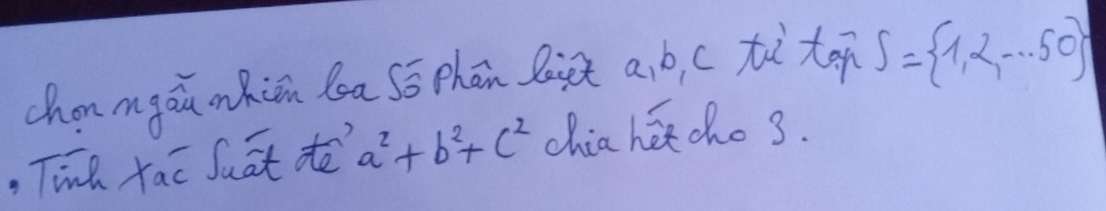 chọn ngẫu nhiên ba số phân biệt a,b,c từ tập S={1,2,...50}
• Tính xác suất để a²+b²+c² chia hết cho 3.